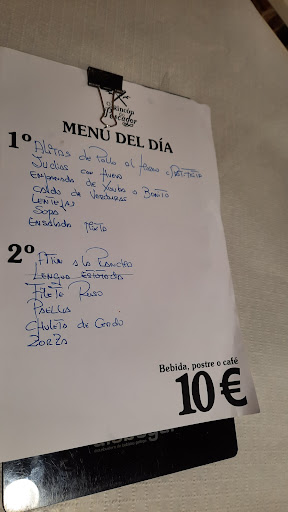 Rincón
Pescador
MENÚ DEL DÍA
1º
Alitas de Pollo al Horno c/ Patata
Judías con Huevo
Empanada de Xouba o Bonito
Caldo de Verduras
Lentejas
Sopa
Ensalada Mixta
2º
Atún a la Plancha
Lengua Estofada
Filete Ruso
Paella
Chuleta de Cerdo
Zorza
Bebida, postre o café
10€